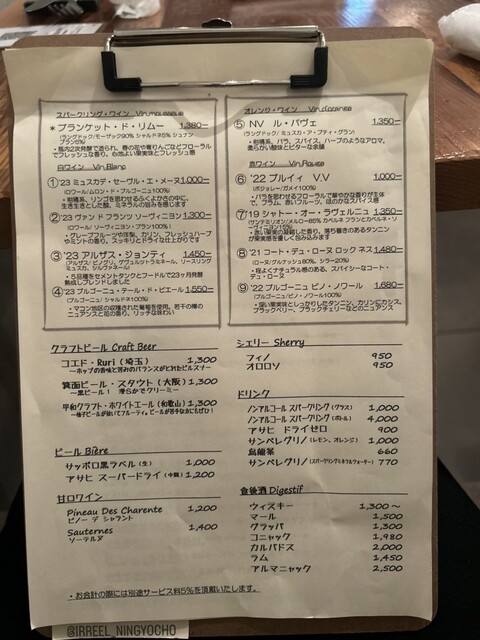 スパークリング・ワイン Vin mousseux
* ブランケット・ド・リムー 1,380-
(ラングドック/モーザック90% シャルドネ5% シュナンブラン5%)
・瓶内2次発酵で造られ、春の花や青りんごなどフローラルでフレッシュな香り、心地よい果実味とフレッシュ感
白ワイン Vin Blanc
① '23 ミュスカデ・セーヴル・エ・メーヌ 1,000-
(ロワール/ムロン・ド・ブルゴーニュ100%)
・柑橘系、リンゴを思わせるふくよかさの中に、生き生きとした酸、ミネラルの旨みを感じます
② '23 ヴァン ド フランツ ソーヴィニヨン 1,300-
(ロワール/ ソーヴィニヨン・ブラン100%)
・グレープフルーツや洋梨、カリン、フレッシュハーブやミントの香り、スッキリとドライな仕上がりです
③ '23 アルザス・ジョンティ 1,450-
(アルザス/ ピノグリ、ゲヴュルツトラミネール、リースリング
ミュスカ、シルヴァネール)
・5品種をセメントタンクとフードルで23ヶ月発酵
熟成しブレンドしました
④ '23 ブルゴーニュ・テール・ド・ピエール 1,550-
(ブルゴーニュ/ シャルドネ100%)
・マコン地区の収穫された葡萄を使用、若干の樽の
ニュアンスと花の香り、リッチな味わい
オレンジ・ワイン Vin d'orange
⑤ NV ル・パヴェ 1,350-
(ラングドック/ ミュスカ・ア・プティ・グラン)
・柑橘系、バラ、スパイス、ハーブのようなアロマ。
柔らかい酸味とビターな余韻
赤ワイン Vin Rouge
⑥ '22 ブルイィ V.V 1,000-
(ボジョレー/ガメイ100%)
・バラを思わせるフローラルで華やかな香りが主体で、プラム、赤いフルーツ、ほのかなスパイス感
⑦ '19 シャトー・オー・ラヴェルニ 1,350-
⑧ '21 コート・デュ・ローヌ ロック ネス 1,480-
(ローヌ/グルナッシュ80%、シラー20%)
・程よくナチュラル感のある、スパイシーなコート・デュ・ローヌ
⑨ '22 ブルゴーニュ ピノ・ノワール 1,680-
(ブルゴーニュ/ピノ・ノワール100%)
・深い果実味としっかりしたタンニン、カリンにカシス、
ブラックベリー、ブラックチェリーなどのニュアンス
クラフトビール Craft Beer
コエド・Ruri (埼玉) 1,300
～ホップの香味と苦みのバランスがとれたピルスナー
箕面ビール・スタウト (大阪) 1,300
～黒ビール！ 滑らかでクリーミー
平和クラフト・ホワイトエール (和歌山) 1,300
～柚子ピールが効いてフルーティ。ビールが苦手な方にもぜひ！
ビール Bière
サッポロ黒ラベル (生) 1,000
アサヒ スーパードライ (中瓶) 1,200
甘口ワイン
Pineau Des Charente 1,200
ピノー デ シャラント
Sauternes 1,400
ソーテルヌ
シェリー Sherry
フィノ 950
オロロソ 950
ドリンク
ノンアルコール スパークリング (グラス) 1,000
ノンアルコール スパークリング (ボトル) 4,000
アサヒ ドライゼロ 900
サンペレグリノ (レモン、オレンジ) 1,000
烏龍茶 660
サンペレグリノ (スパークリングミネラルウォーター) 770
食後酒 Digestif
ウィスキー 1,300～
マール 1,500
グラッパ 1,300
コニャック 1,980
カルバドス 2,000
ラム 1,450
アルマニャック 2,500
・お会計の際には別途サービス料5%を頂戴いたします。
@IRREEL_NINGYOCHO